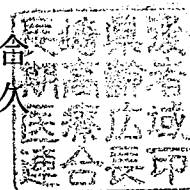 合久
長崎県後
期高齢者
医療広域
連合長印